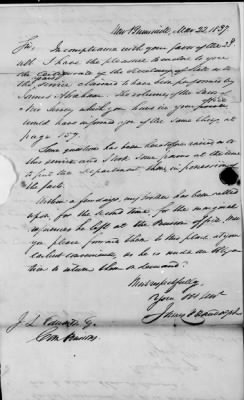 New Brunswick, Mar 22. 1837
Sir, In compliance with your favor of the 28
ult. I have the pleasure to enclose to you
the Certificate of the Secretary of State as to
the service claimed to have been performed by
James Abraham. The volumes of the Laws of
New Jersey which you have in your office
would have informed you of the same thing, at
page 157.
Some question has been heretofore raised as to
this service and I took some pains at the time
to put the Department in possession of
the facts.
Within a few days, my brother has been called
upon, for the second time, for the
he left at the Pension office. Will
you please forward them to this place at your
earliest convenience, as he is under an obliga
tion to return them on demand.
Most respectfully
Your Obt Servt
James
J. L. Edwards Esq.
Com Pensions